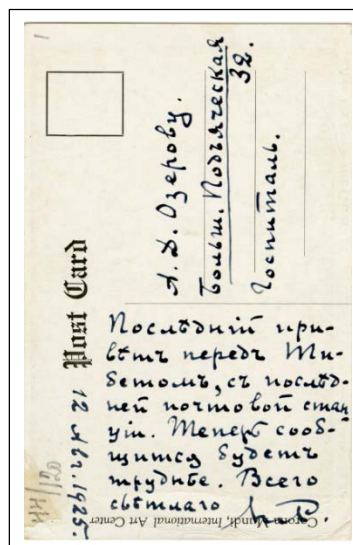 Post Card
А. Д. Озерову.
Больш. Подъяческая
32.
Госпиталь.
12 Авг. 1925.
Послѣднiй при-
вѣтъ передъ Ти-
бетомъ, съ послѣд-
ней почтовой стан
цiи. Теперь сооб-
щится будетъ
труднѣе. Всего
свѣтлаго
Corona Mundi, International Art Center